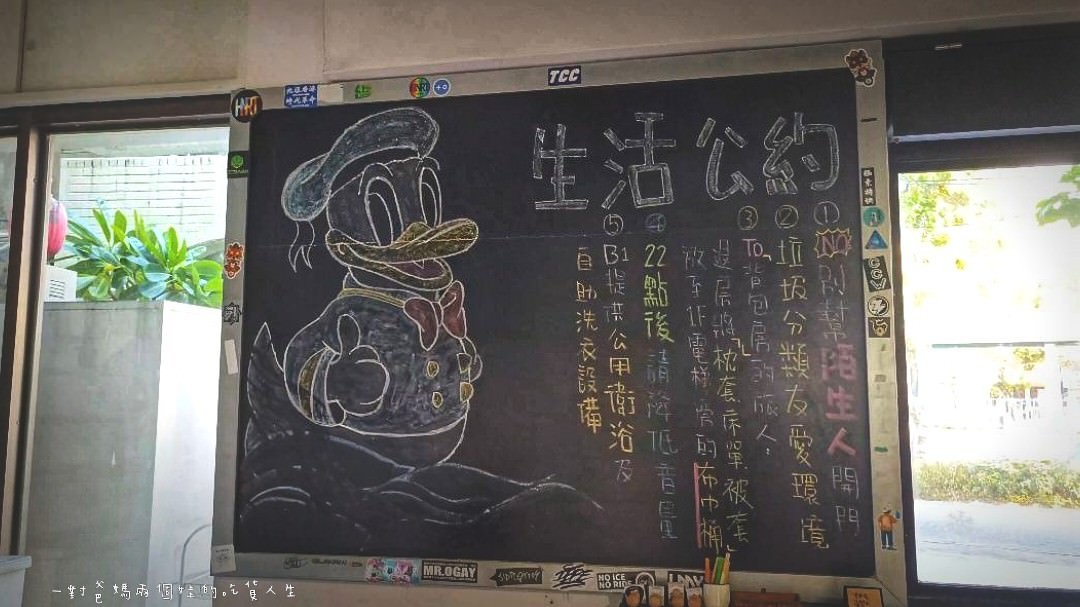 生活公約
① NO 別幫陌生人開門
② 垃圾分類友愛環境
③ To 背包房的旅人，
退房將「枕套床單被套
放至1F電梯旁的布巾桶」
④ 22點後請降低音量
⑤ B1提供公用衛浴及
自助洗衣設備
TCC
光復香港
時代革命
MR.OGAY
NO ICE
NO RIDE
CCW
一對爸媽兩個娃的吃貨人生